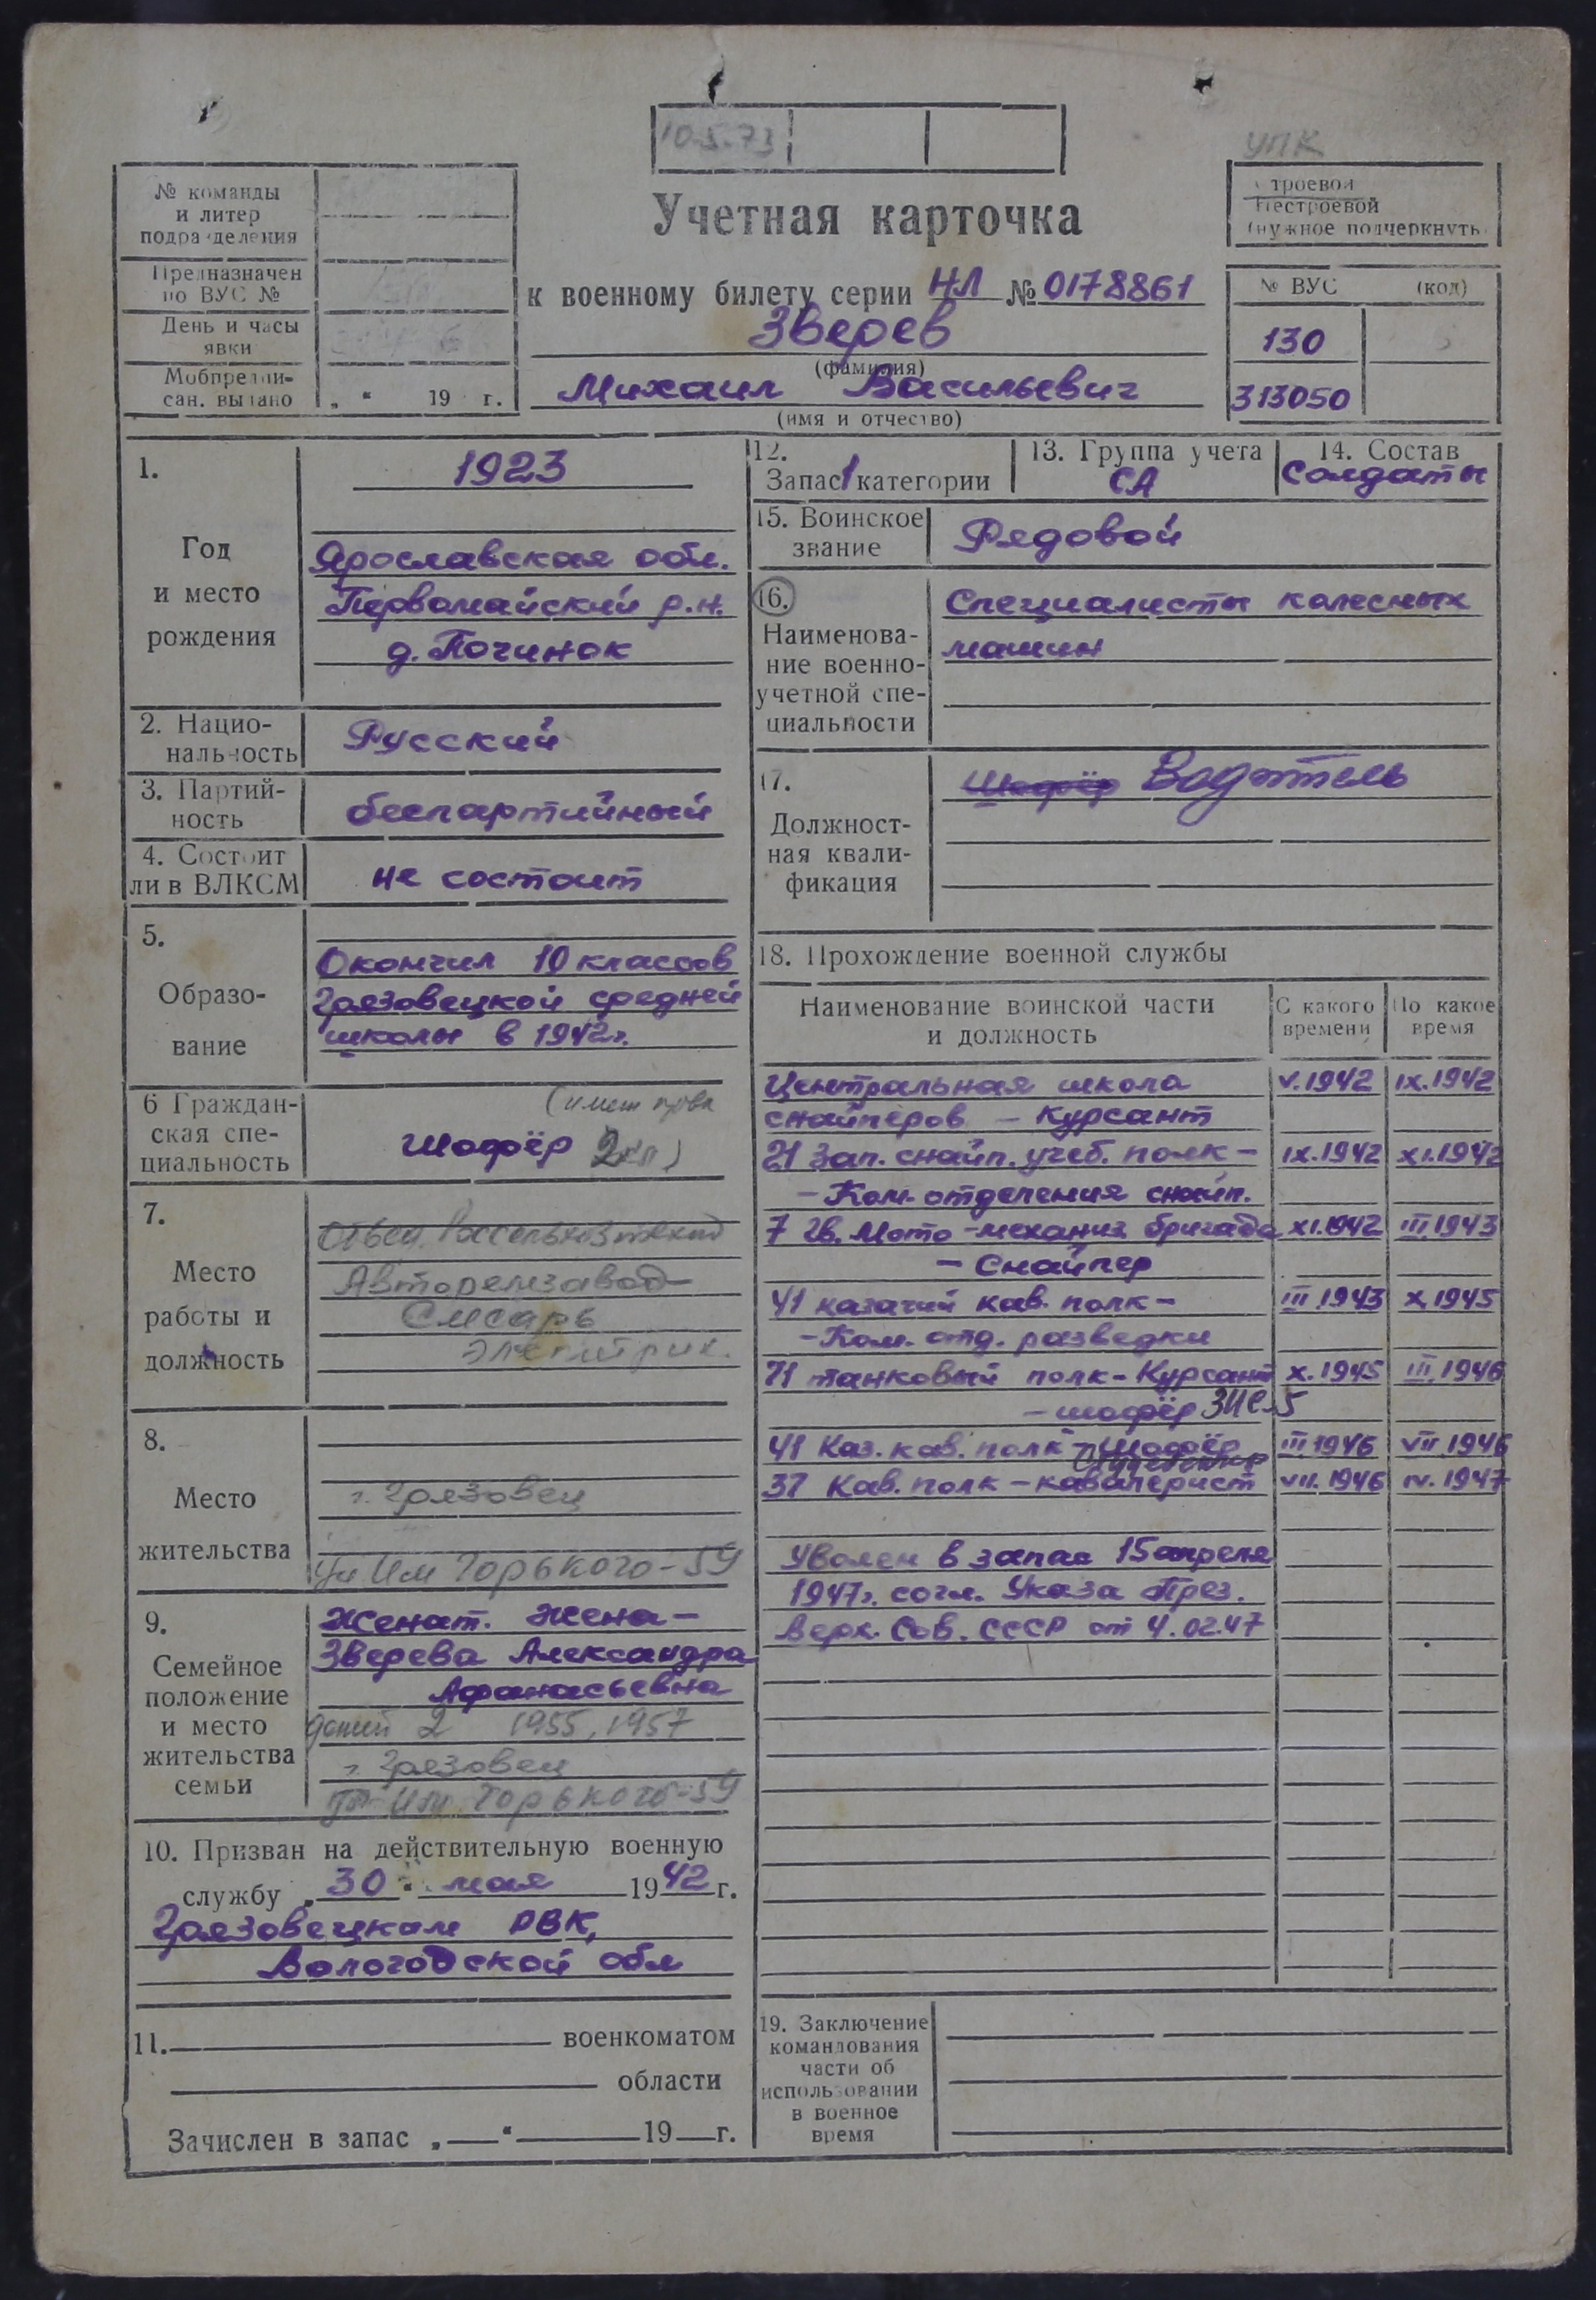 10.5.73
УПК
№ команды
и литер
подразделения
Предназначен
по ВУС №
День и часы
явки
Мобпредпи-
сан. выдано „ “ 19 г.
Учетная карточка
к военному билету серии НЛ № 0178861
Зверев
(фамилия)
Михаил Васильевич
(имя и отчество)
Строевой
Нестроевой
(нужное подчеркнуть
№ ВУС (код)
130
313050
1.
Год
и место
рождения
1923
Ярославская обл.
Первомайский р.н.
д. Починок
2. Нацио-
нальность
Русский
3. Партий-
ность
беспартийный
4. Состоит
ли в ВЛКСМ
не состоит
5.
Образо-
вание
Окончил 10 классов
Грязовецкой средней
школы в 1942г.
6 Граждан-
ская спе-
циальность
(имеет права
Шофёр 2кл)
7.
Место
работы и
должность
Авторемзавод
Слесарь
Электрик.
8.
Место
жительства
г. Грязовец
ул Им Горького-59
9.
Семейное
положение
и место
жительства
семьи
Женат. Жена-
Зверева Александра
Афанасьевна
детей 2 1955, 1957
г. Грязовец
Им. Горького-59
10. Призван на действительную военную
службу „30“ мая 1942 г.
Грязовецким РВК,
Вологодской обл
11. военкоматом
области
Зачислен в запас „ “ 19 г.
12.
Запас 1 категории
13. Группа учета
СА
14. Состав
Солдаты
15. Воинское
звание
Рядовой
16.
Наименова-
ние военно-
учетной спе-
циальности
Специалисты колесных
машин
17.
Должност-
ная квали-
фикация
Шофёр Водитель
18. Прохождение военной службы
Наименование воинской части
и должность
С какого
времени
По какое
время
Центральная школа V.1942 IX.1942
снайперов - Курсант
21 Зап. снайп. учеб. полк- IX.1942 XI.1942
-Ком. отделения снайп.
7 Гв. Мото-механиз бригада XI.1942 III.1943
- Снайпер
41 казачий кав. полк- III.1943 X.1945
-Ком. отд. разведки
71 танковый полк-Курсант X.1945 III.1946
-шофёр ЗИС-5
41 Каз. кав. полк-Шофёр III.1946 VII.1946
37 Кав. полк-кавалерист VII.1946 IV.1947
Уволен в запас 15 апреля
1947г. согл. Указа През.
Верх. Сов. СССР от 4.02.47
19. Заключение
командования
части об
использовании
в военное
время